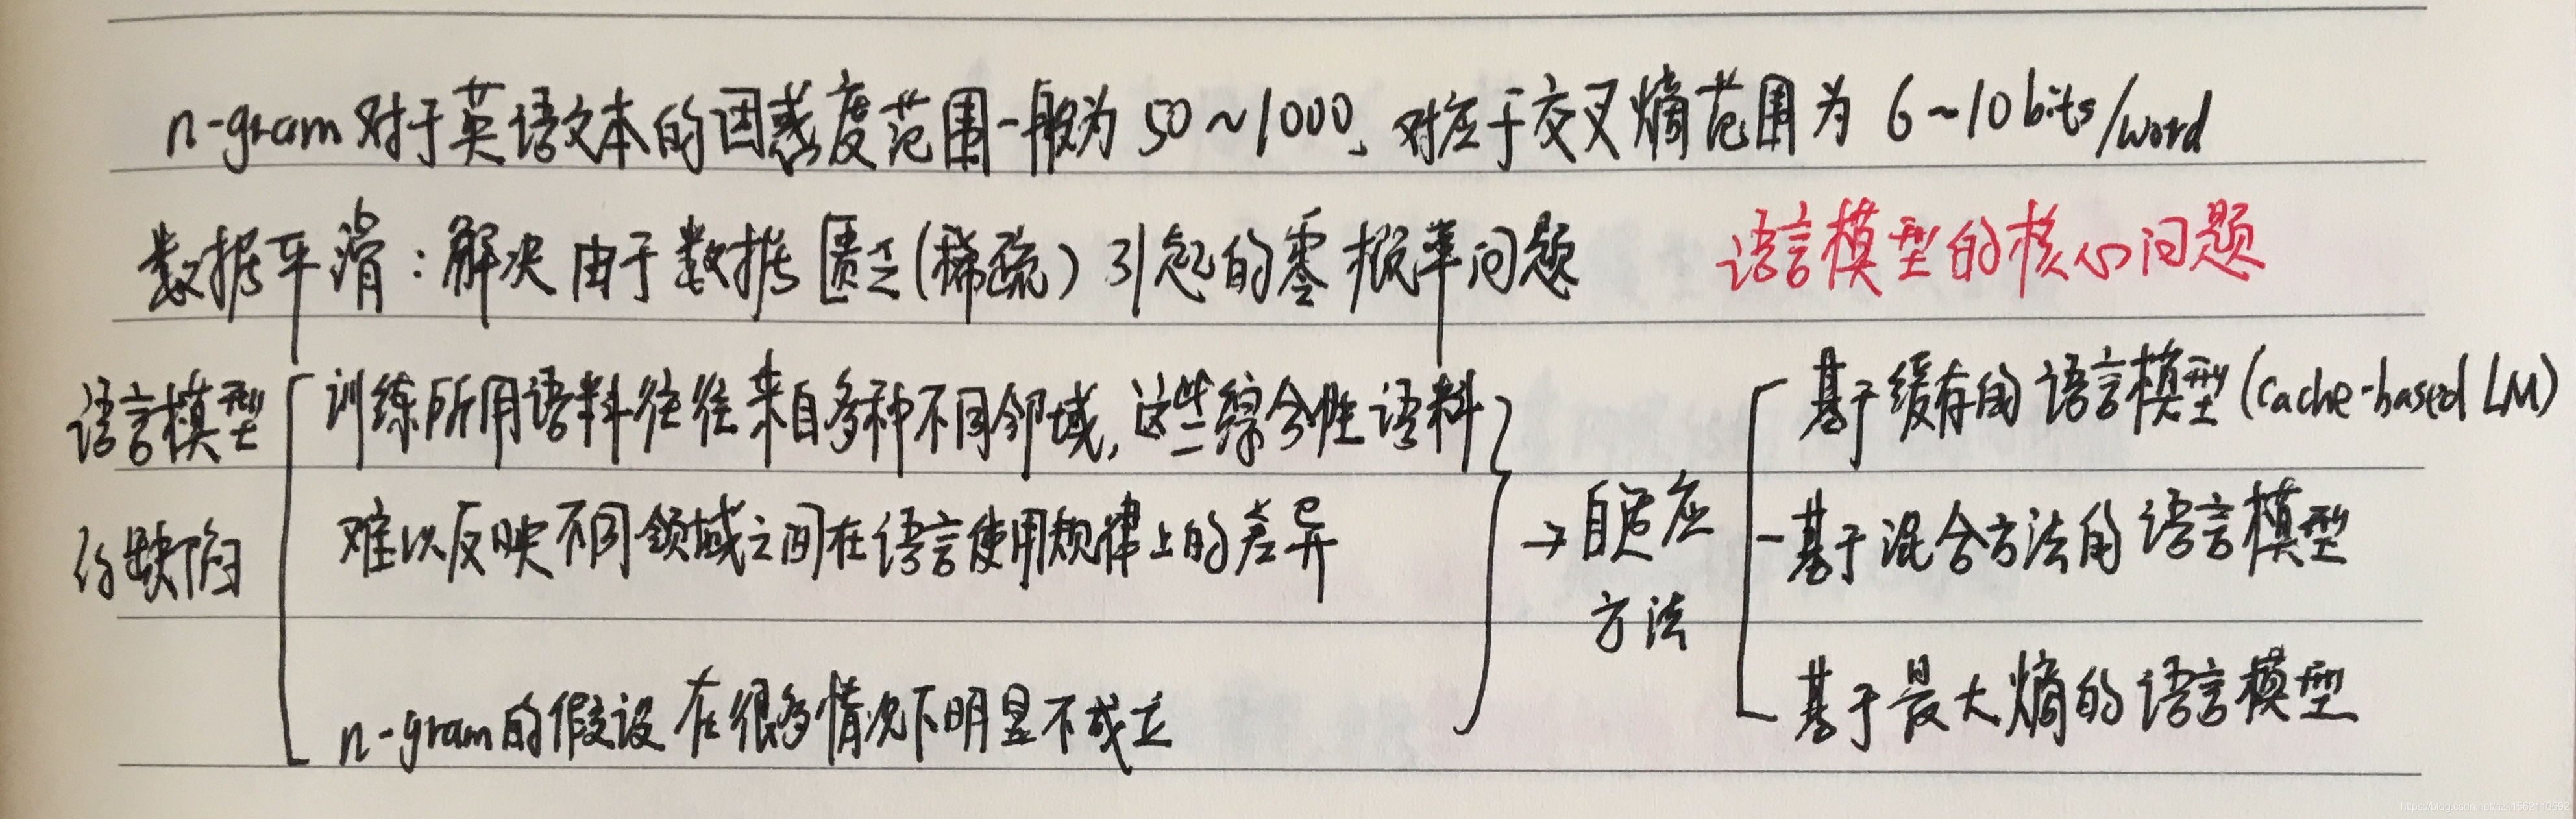 n-gram对于英语文本的困惑度范围一般为50~1000, 对应于交叉熵范围为 6~10 bits/word
数据平滑:解决由于数据匮乏(稀疏)引起的零概率问题
语言模型的核心问题
语言模型
的缺陷
训练所用语料往往来自多种不同领域,这些综合性语料
难以反映不同领域之间在语言使用规律上的差异
n-gram的假设在很多情况下明显不成立
→自适应
方法
基于缓存的语言模型(Cache-based LM)
基于混合方法的语言模型
基于最大熵的语言模型